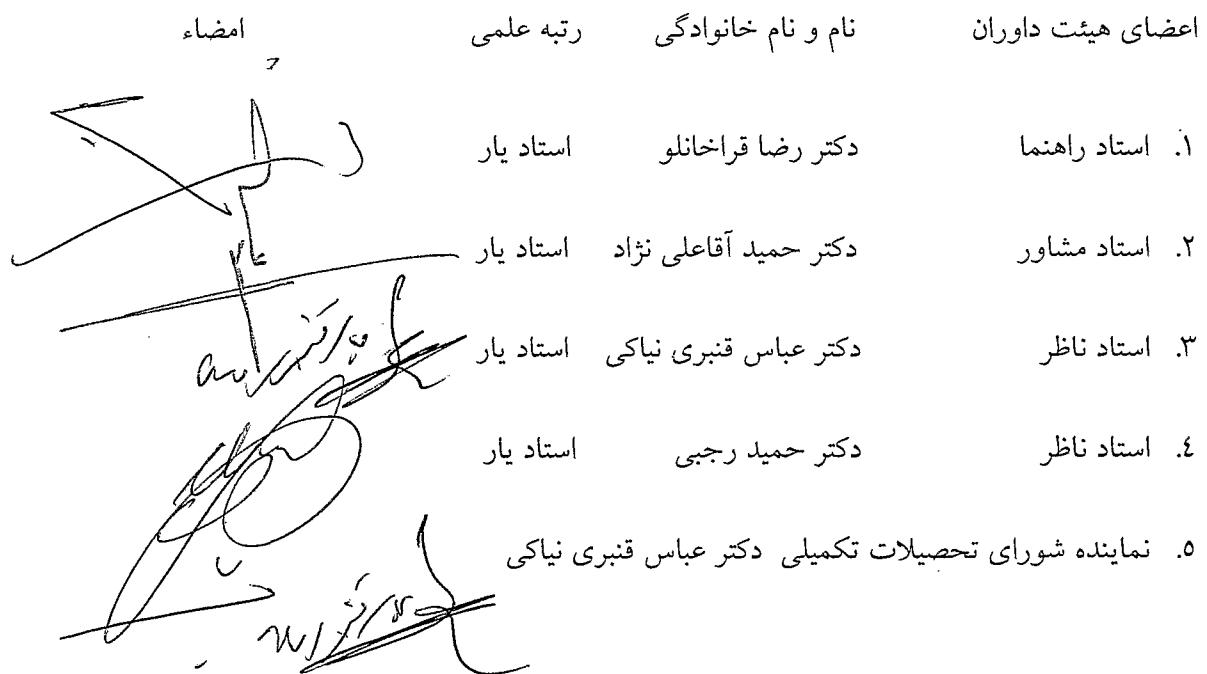 اعضای هیئت داوران نام و نام خانوادگی رتبه علمی امضاء
۱. استاد راهنما دکتر رضا قراخانلو استاد یار
۲. استاد مشاور دکتر حمید آقاعلی نژاد استاد یار
۳. استاد ناظر دکتر عباس قنبری نیاکی استاد یار
٤. استاد ناظر دکتر حمید رجبی استاد یار
٥. نماینده شورای تحصیلات تکمیلی دکتر عباس قنبری نیاکی